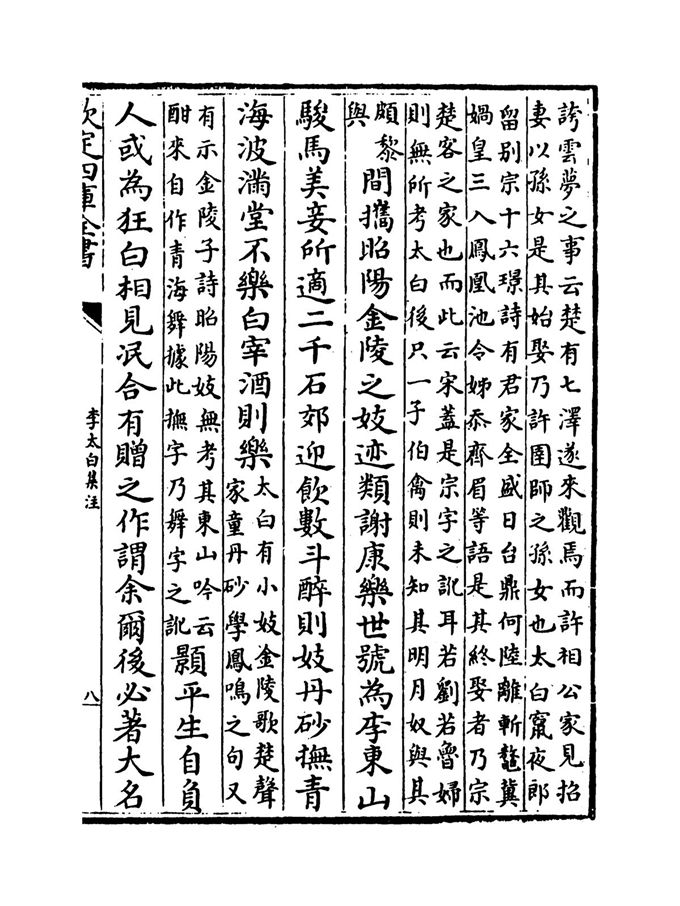 誇雲夢之事云楚有七澤遂來觀焉而許相公家見招
妻以孫女是其始娶乃許圉師之孫女也太白竄夜郎
留别宗十六璟詩有君家全盛日台鼎何陸離斬鼇冀
媧皇三入鳳凰池令姊忝齊眉等語是其終娶者乃宗
楚客之家也而此云宋蓋是宗字之訛耳若劉若魯婦
則無所考太白後只一子伯禽則未知其明月奴與其
頗黎
與
間攜昭陽金陵之妓迹類謝康樂世號為李東山
駿馬美妾所適二千石郊迎飲數斗醉則妓丹砂撫青
海波滿堂不樂白宰酒則樂
太白有小妓金陵歌楚聲
家童丹砂學鳳鳴之句又
有示金陵子詩昭陽妓無考其東山吟云
酣來自作青海舞據此撫字乃舞字之訛
顥平生自負
人或為狂白相見泯合有贈之作謂余爾後必著大名
欽定四庫全書
李太白集注
八